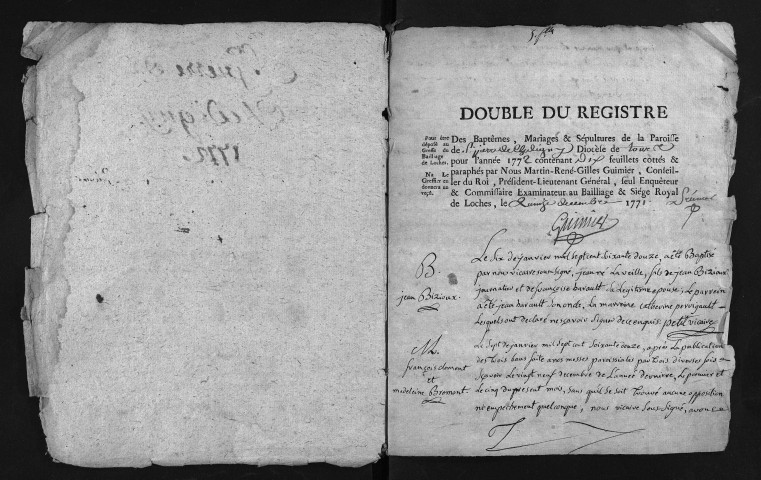 St pierre de
Chedigny
1772
DOUBLE DU REGISTRE
Pour être
déposé au
Greffe du
Bailliage
de Loches.
No Le
Greffier en
donnera un
reçu.
Des Baptêmes, Mariages & Sépultures de la Paroisse
de St pierre de Chedigny Diocèse de tours
pour l'année 1772 contenant dix feuillets côttés &
paraphés par Nous Martin-René-Gilles Guimier, Conseil-
ler du Roi, Président-Lieutenant Général, seul Enquêteur
& Commissaire Examinateur au Bailliage & Siége Royal
de Loches, le quinze decembre 1771.
Guimier
B.
jean Bizioux.
Le six de janvier mil sept cent soixante douze, a été Baptisé
par nous vicaire soussigné, jean né la veille, fils de jean Bizioux
journalier et de françoise barault sa légitime epouse; le parrein
a été jean barault son oncle, la marreine catherine
lesquels ont declaré ne scavoir signer de ce enquis. petit vicaire
M.
françois clement
et
madeleine Bremont.
Le sept de janvier mil sept cent soixante douze, apres la publication
des trois bans faite a nos messes paroissiales par trois diverses fois
scavoir le vingt neuf decembre de l'année derniere, le premier et
le cinq du present mois, sans quil se soit trouvé aucune opposition
ni empêchement quelconque, nous vicaire sous signé, avons